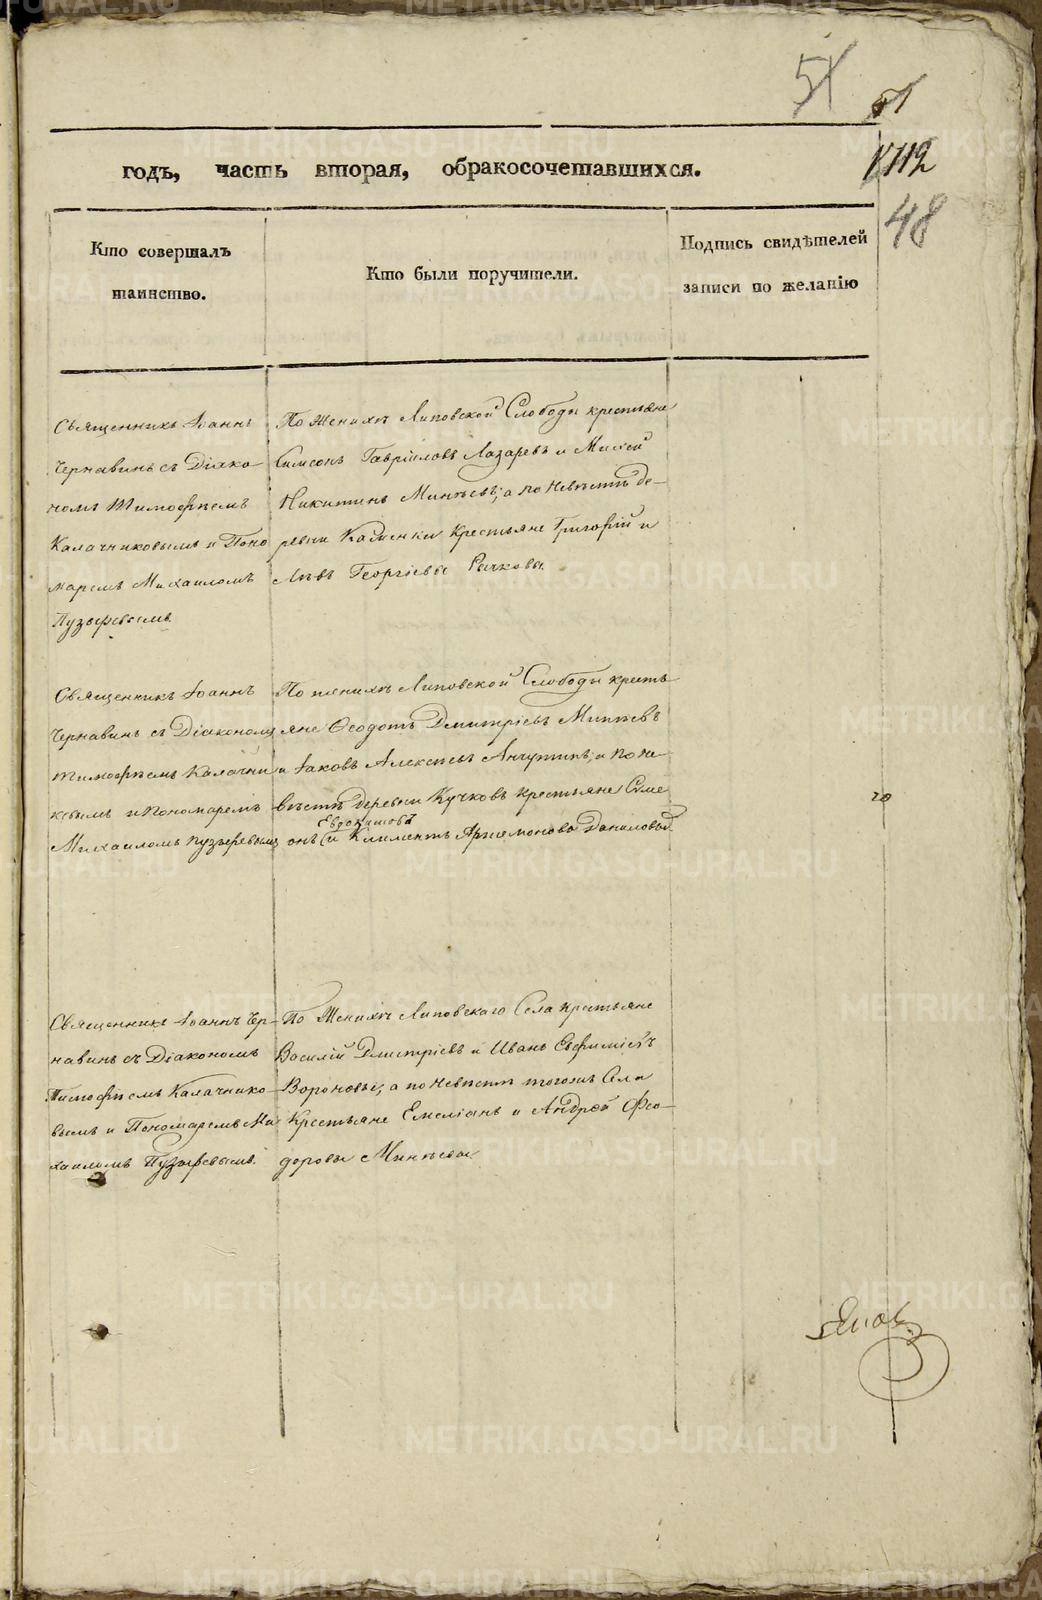 51
51
1112
48
годъ, часть вторая, обракосочетавшихся.
Кто совершалъ
таинство.
Кто были поручители.
Подпись свидѣтелей
записи по желанію
Священникъ Іоаннъ
Чернавинъ съ Діако-
номъ Тимофѣемъ
Калачниковымъ и Поно
маремъ Михаиломъ
Пузыревымъ.
По женихѣ Липовской Слободы крестьяне
Симеонъ Гавріиловъ Лазаревъ и Михей
Никитинъ Минѣевъ; а по Невѣстѣ де-
ревни Каменки Крестьяне Григорій и
Левъ Георгіевы Рычковы.
Священникъ Іоаннъ
Чернавинъ съ Діакономъ
Тимофѣемъ Калачни
ковымъ и Пономаремъ
Михаиломъ Пузыревымъ
По женихѣ Липовской Слободы кресть
яне Ѳеодотъ Дмитріевъ Минѣевъ
и Іаковъ Алексѣевъ Анчутинъ; и по не-
вѣстѣ деревни Кучковъ крестьяне Симе
Евдокимовъ
онъ и Климентъ Артемоновъ Даниловы.
20
Священникъ Іоаннъ Чер-
навинъ съ Діакономъ
Тимофѣемъ Калачнико-
вымъ и Пономаремъ Ми
хаиломъ Пузыревымъ.
По Женихѣ Липовскаго Села крестьяне
Василій Дмитріевъ и Иванъ Евфиміевъ
Вороновы; а по невѣстѣ тогожъ Села
Крестьяне Емеліанъ и Андрей Ѳео-
доровы Минѣевы
METRIKI.GASO-URAL.RU